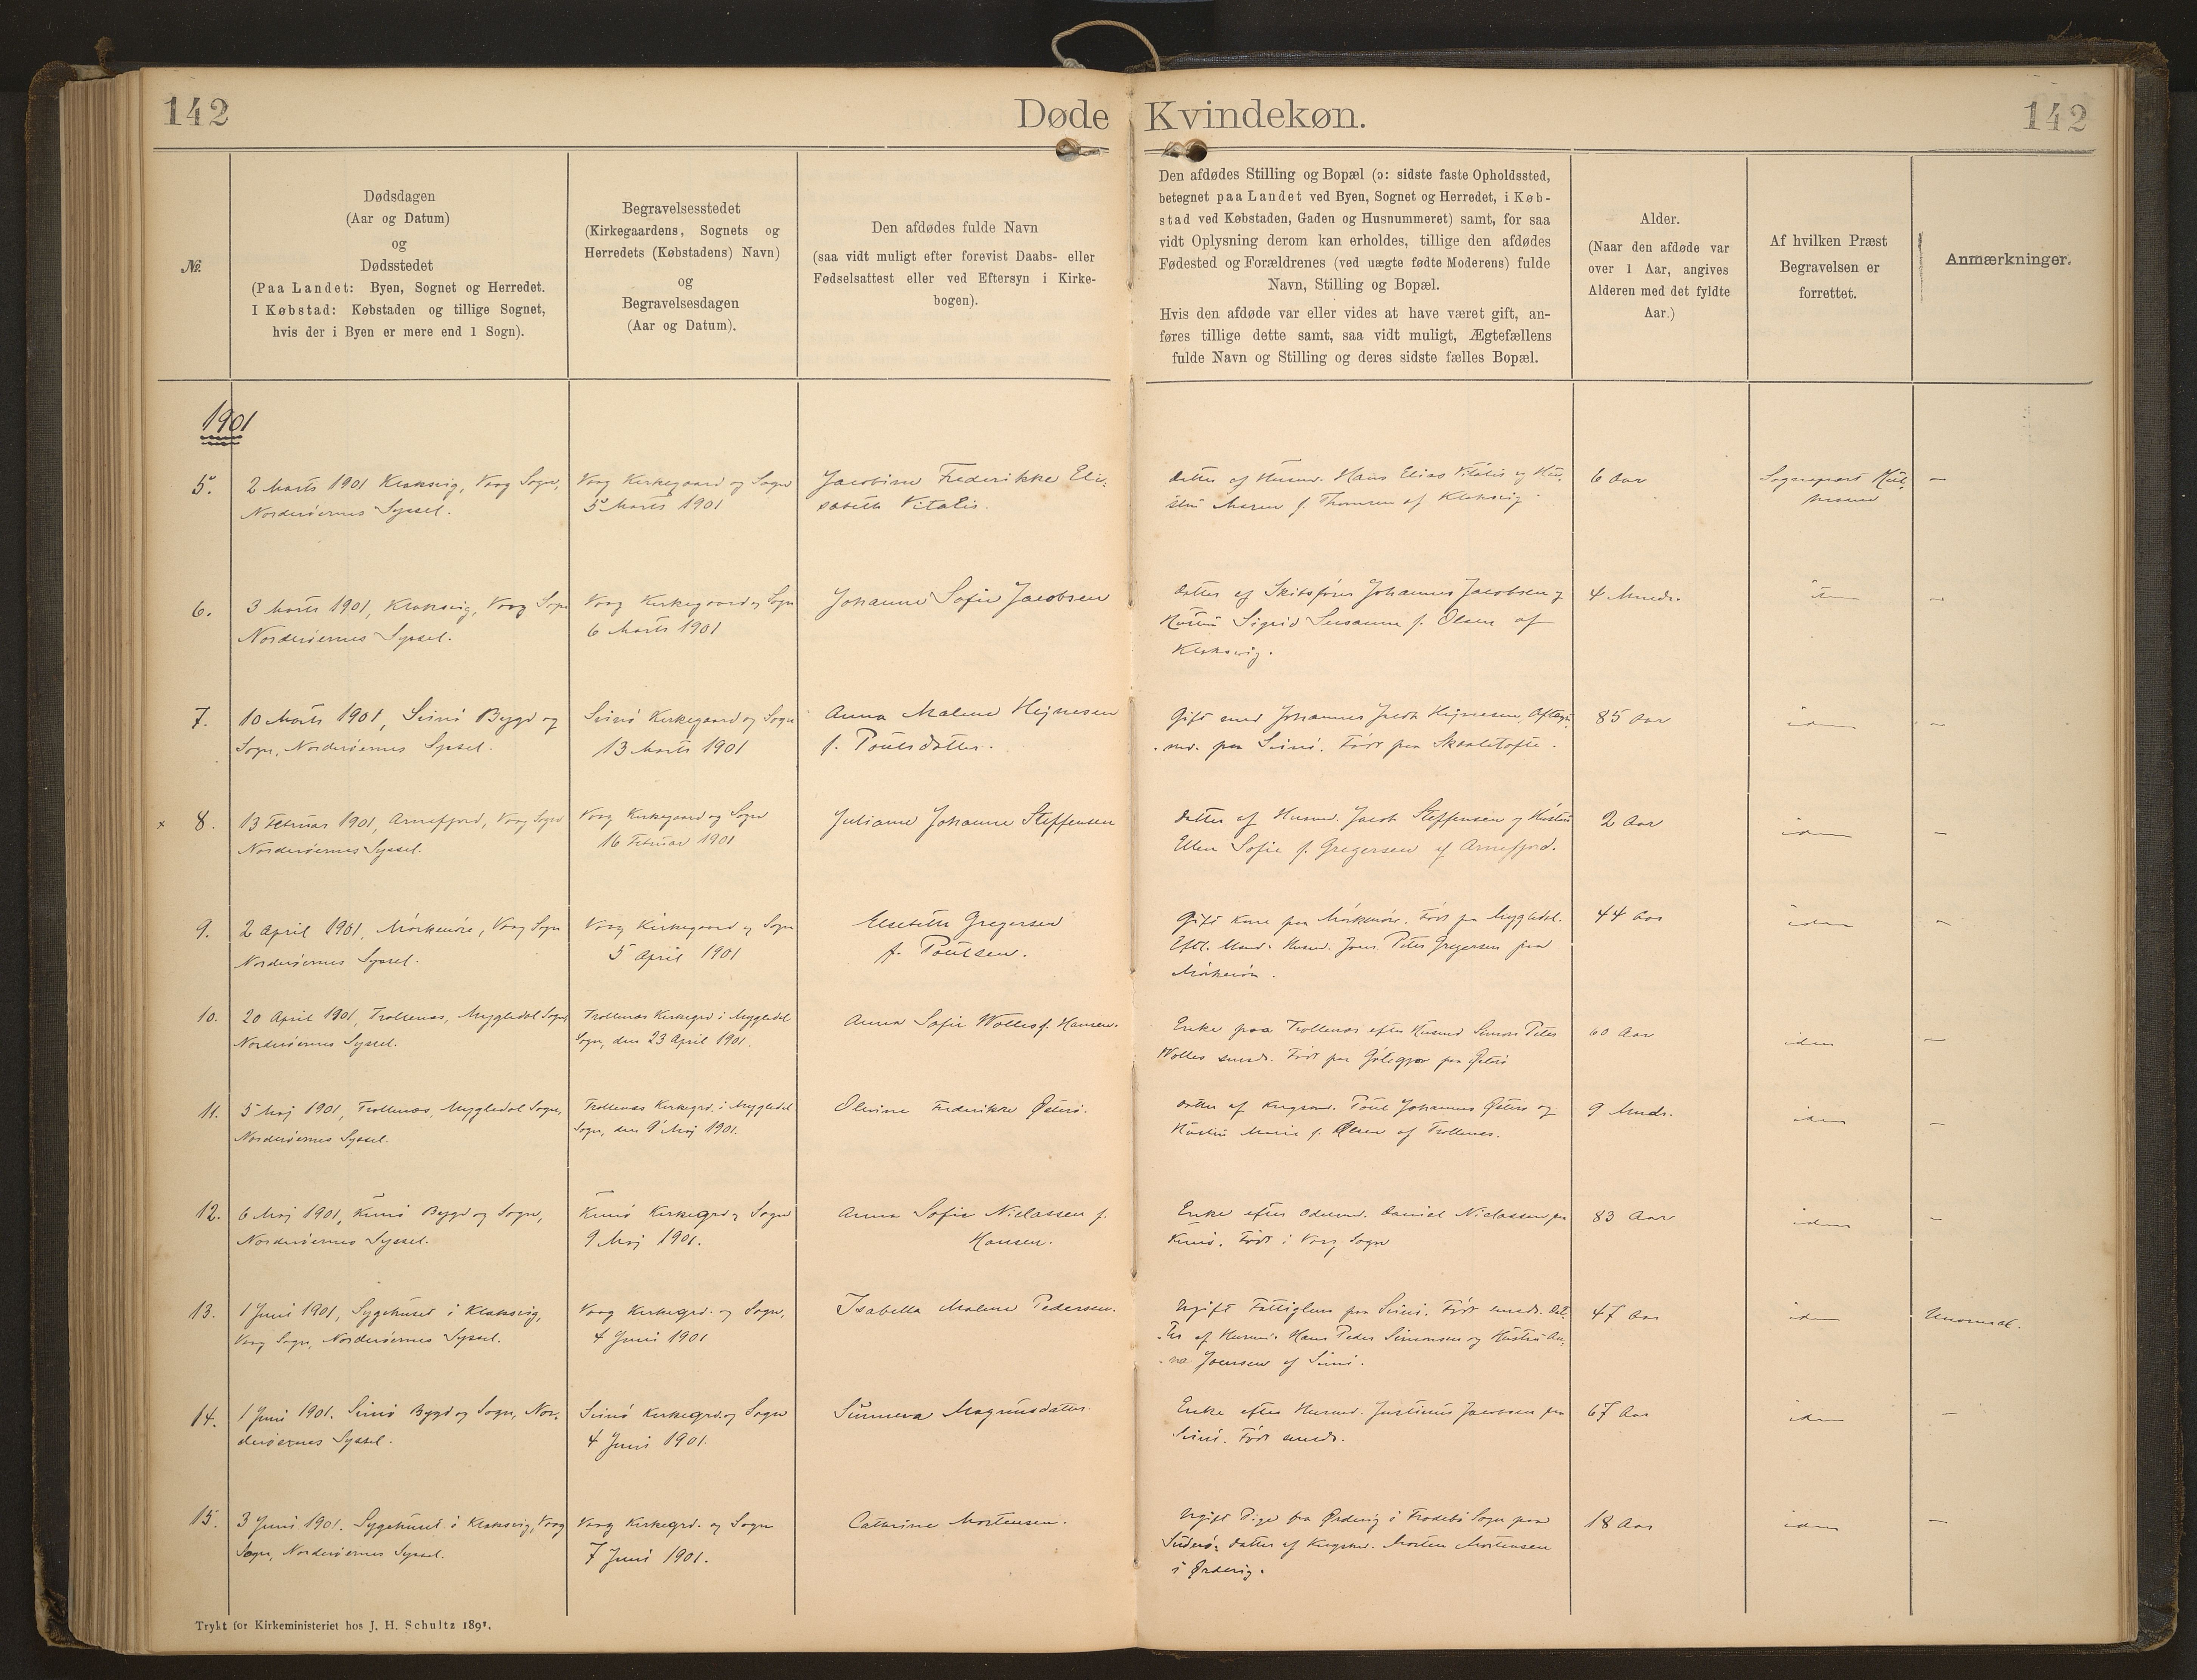 142
Døde Kvindekøn.
142
№.
Dødsdagen
(Aar og Datum)
og
Dødsstedet
(Paa Landet: Byen, Sognet og Herredet.
I Købstad: Købstaden og tillige Sognet,
hvis der i Byen er mere end 1 Sogn).
Begravelsesstedet
(Kirkegaardens, Sognets og
Herredets (Købstadens) Navn)
og
Begravelsesdagen
(Aar og Datum).
Den afdødes fulde Navn
(saa vidt muligt efter forevist Daabs- eller
Fødselsattest eller ved Eftersyn i Kirke-
bogen).
Den afdødes Stilling og Bopæl (ɔ: sidste faste Opholdssted,
betegnet paa Landet ved Byen, Sognet og Herredet, i Køb-
stad ved Købstaden, Gaden og Husnummeret) samt, for saa
vidt Oplysning derom kan erholdes, tillige den afdødes
Fødested og Forældrenes (ved uægte fødte Moderens) fulde
Navn, Stilling og Bopæl.
Hvis den afdøde var eller vides at have været gift, an-
føres tillige dette samt, saa vidt muligt, Ægtefællens
fulde Navn og Stilling og deres sidste fælles Bopæl.
Alder.
(Naar den afdøde var
over 1 Aar, angives
Alderen med det fyldte
Aar.)
Af hvilken Præst
Begravelsen er
forrettet.
Anmærkninger.
1901
5.
2 Marts 1901 Klaksvig, Vaag Sogn,
Norderöernes Syssel.
Vaag Kirkegaard og Sogn
5 Marts 1901
Jacobine Frederikke Eli-
sabeth Vitalis.
Datter af Husmd. Hans Elias Vitalis og Hu-
stru Maren f. Thomsen af Klaksvig.
6 Aar
Sognepræst
—
6.
3 Marts 1901, Klaksvig, Vaag Sogn
Norderöernes Syssel.
Vaag Kirkegaard og Sogn
6 Marts 1901
Johanne Sofie Jacobsen
Datter af Skibsfører Johannes Jacobsen og
Hustru Sigrid Susanne f. Olsen af
Klaksvig.
4 Mnedr.
idem
—
7.
10 Marts 1901, Svinö Bygd og
Sogn, Norderöernes Syssel.
Svinö Kirkegaard og Sogn
13 Marts 1901
Anna Malene Hejnesen
f. Poulsdatter.
Gift med Johannes Hejnesen, Aftægts-
md. paa Svinö. Född paa Skaaletofte.
85 Aar
idem
—
× 8.
13 Februar 1901, Arnefjord, Vaag Sogn
Norderöernes Syssel.
Vaag Kirkegaard og Sogn
16 Februar 1901
Juliane Johanne Steffensen
Datter af Husmd. Jacob Steffensen og Hustru
Ellen Sofie f. Gregersen af Arnefjord.
2 Aar
idem
—
9.
2 April 1901, Mörkenöre, Vaag Sogn
Norderöernes Syssel.
Vaag Kirkegaard og Sogn
5 April 1901
Elsebeth Gregersen
f. Poulsen.
Gift Kone paa Mörkenöre. Född paa Mygledal.
Eftl. Mand: Husmd. Peter Gregersen paa
Mörkenöre.
44 Aar
idem
—
10.
20 April 1901, Trollenæs, Mygledal Sogn,
Norderöernes Syssel.
Trollenæs Kirkegrd i Mygledal
Sogn, den 23 April 1901.
Anna Sofie Wolles f. Hansen.
Enke paa Trollenæs efter Husmd Simon Peter
Wolles smds. Född paa Götegjov paa Österö
60 Aar
idem
—
11.
5 Maj 1901, Trollenæs, Mygledal Sogn,
Norderöernes Syssel.
Trollenæs Kirkegrd. i Mygledal
Sogn, den 9 Maj 1901.
Olevine Frederikke Österö.
Datter af Kngsmd. Poul Johannes Österö og
Hustru Marie f. Olsen af Trollenæs.
9 Mndr.
idem
—
12.
6 Maj 1901, Kunö Bygd og Sogn,
Norderöernes Syssel.
Kunö Kirkegrd og Sogn
9 Maj 1901.
Anna Sofie Niclassen f.
Hansen.
Enke efter Odelsmd. Daniel Niclassen paa
Kunö. Född i Vaag Sogn
83 Aar
idem
—
13.
1 Juni 1901, Sygehuset i Klaksvig,
Vaag Sogn, Norderöernes Syssel.
Vaag Kirkegrd. og Sogn,
4 Juni 1901
Isabella Malene Pedersen.
Ugift Fattiglem paa Svinö. Född smds. Dat-
ter af Husmd. Hans Peder Simonsen og Hustru An-
na Joensen af Svinö.
47 Aar
idem
Unormal.
14.
1 Juni 1901. Svinö Bygd og Sogn, Nor-
deröernes Syssel.
Svinö Kirkegrd. og Sogn
4 Juni 1901.
Sunneva Magnusdatter.
Enke efter Husmd. Justinus Jacobsen paa
Svinö. Född smds.
67 Aar
idem
—
15.
3 Juni 1901. Sygehuset i Klaksvig, Vaag
Sogn, Norderöernes Syssel.
Vaag Kirkegrd. og Sogn
7 Juni 1901.
Cathrine Mortensen.
Ugift Pige fra Ørdevig i Frodebö Sogn paa
Suderö. Datter af Kngsmd. Morten Mortensen
i Ørdevig.
18 Aar
idem
—
Trykt for Kirkeministeriet hos J. H. Schultz 1891.